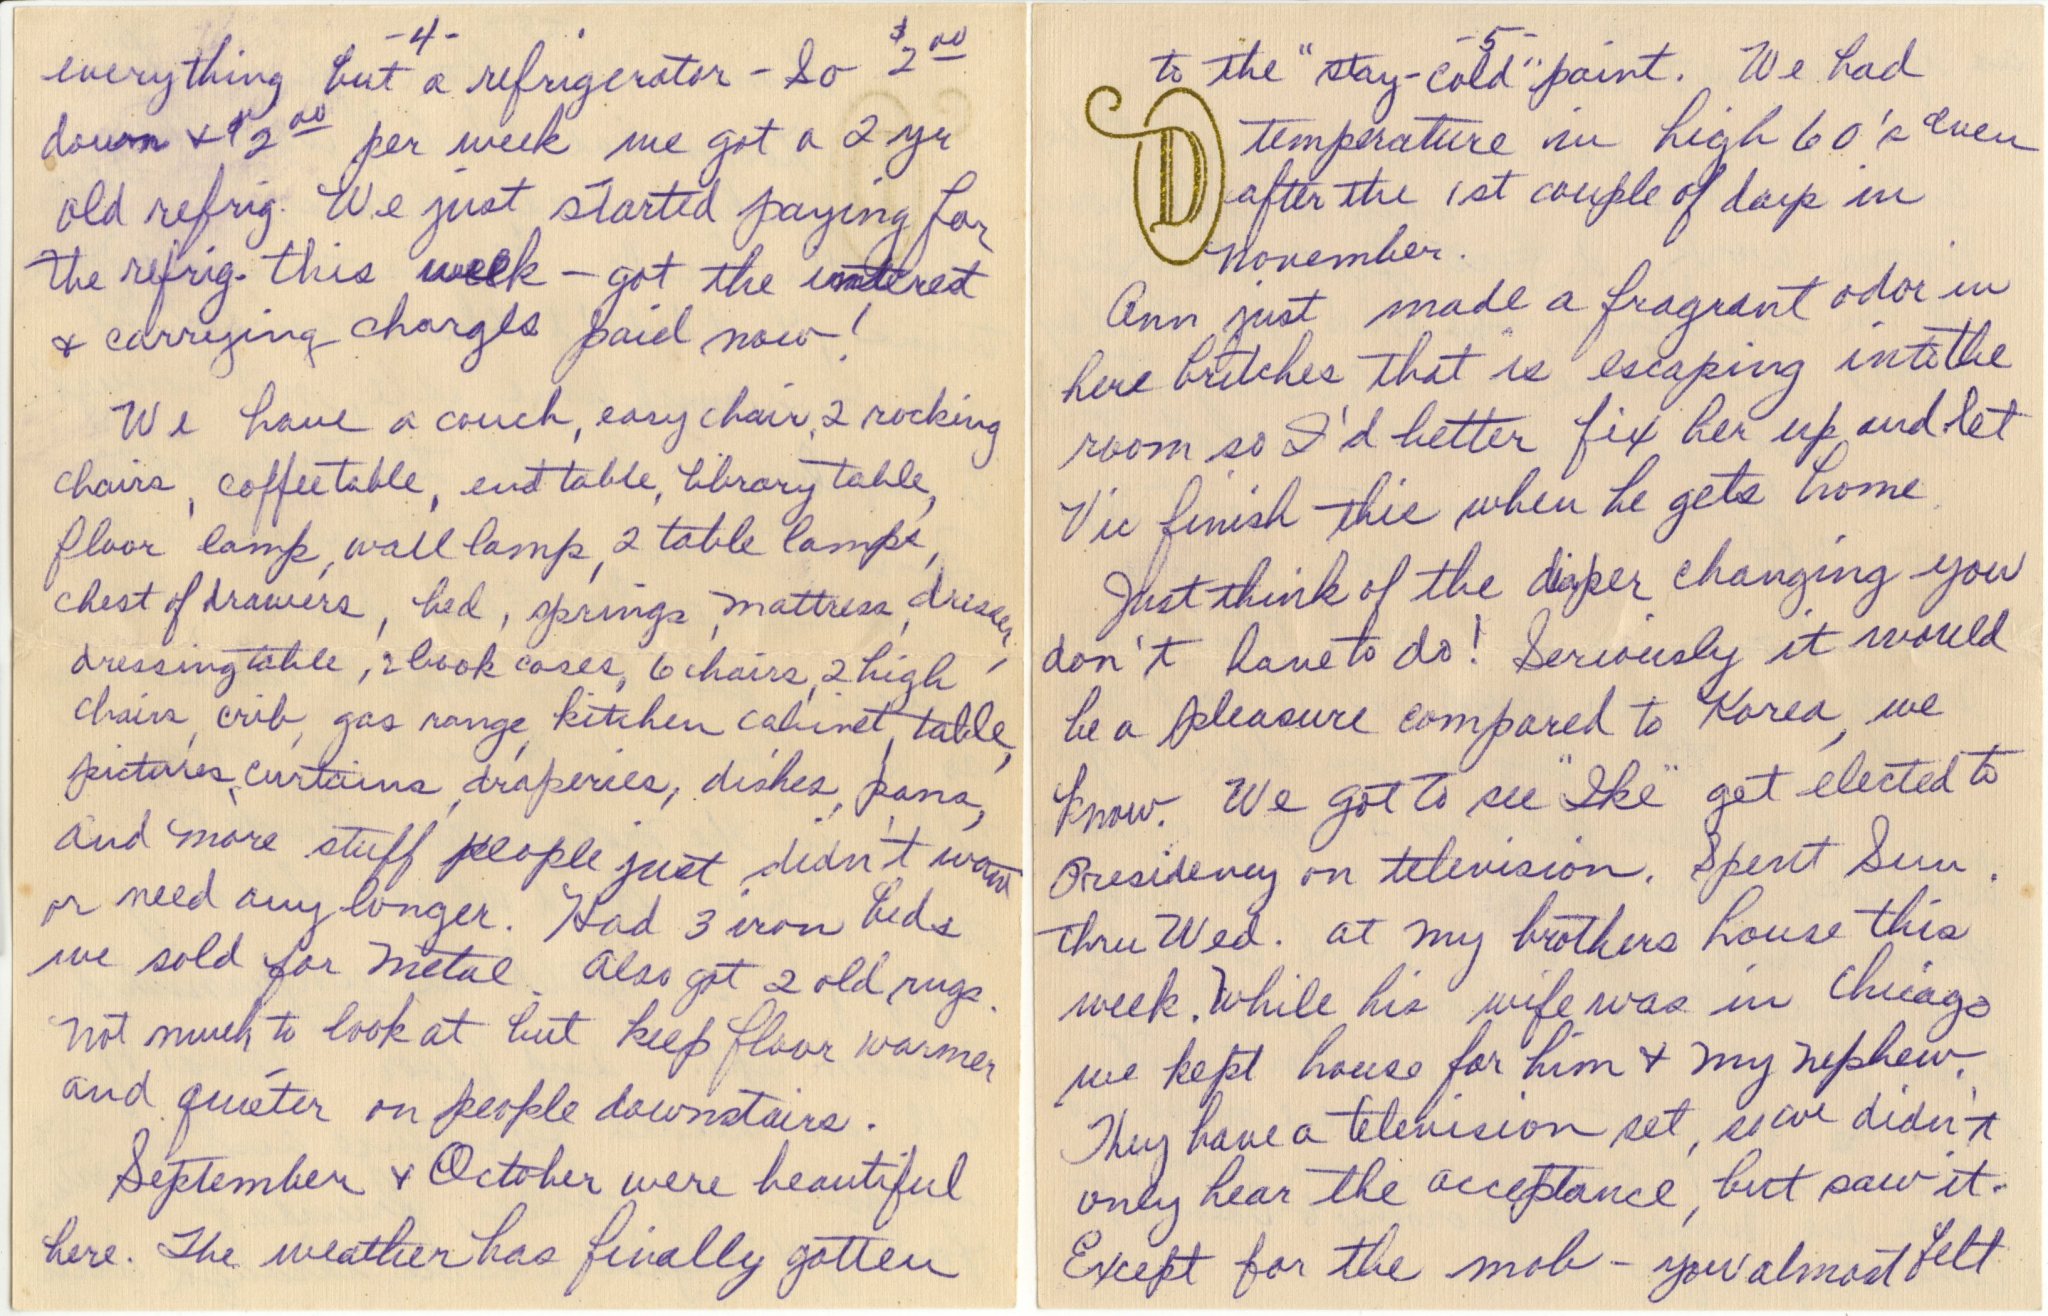 -4-
everything but a refrigerator - So $2.00
down + $2.00 per week we got a 2 yr
old refrig. We just started paying for
the refrig. this week - got the interest
& carrying charges paid now!
We have a couch, easy chair, 2 rocking
chairs, coffeetable, endtable, library table,
floor lamp, wall lamp, 2 table lamps,
chest of drawers, bed, springs, mattress, dresser,
dressingtable, 2 book cases, 6 chairs, 2 high
chairs, crib, gas range, kitchen cabinet, table,
pictures, curtains, draperies, dishes, pans,
and more stuff people just didn't want
or need any longer. Had 3 iron beds
we sold for metal. Also got 2 old rugs.
Not much to look at but keep floor warmer
and quieter on people downstairs.
September & October were beautiful
here. The weather has finally gotten
-5-
to the "stay-cold" point. We had
D
temperature in high 60's even
after the 1st couple of days in
November.
Ann just made a fragrant odor in
here britches that is escaping into the
room so I'd better fix her up and let
Vic finish this when he gets home
Just think of the diaper changing you
don't have to do! Seriously it would
be a pleasure compared to Korea, we
know. We got to see "Ike" get elected to
Presidency on television. Spent Sun.
thru Wed. at my brothers house this
week. While his wife was in Chicago
we kept house for him & my nephew.
They have a television set, so we didn't
only hear the acceptance, but saw it.
Except for the mob - you almost felt